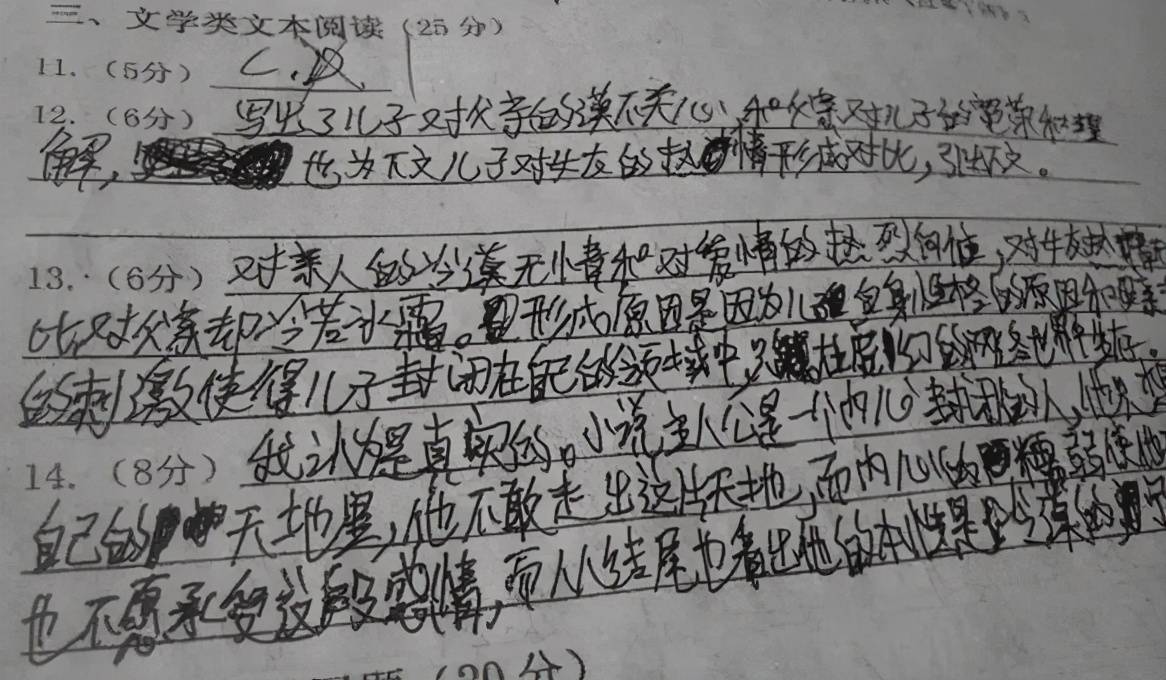 三、文学类文本阅读（25分）
11.（5分） C.D
12.（6分） 写出了儿子对父亲的漠不关心,和父亲对儿子的宽荣和理
解, 也为下文儿子对女友的热情形成对比,引出下文。
13.（6分） 对亲人的冷漠无情和对爱情的热烈何值,对女友热情
比,对父亲却冷若冰霜。形成原因是因为儿子自身性格的原因和母亲
的刺激使得儿子封闭在自己的领域中,只在虚幻的网络世界生存。
14.（8分） 我认为是真实的。小说主人公是一个内心封闭的人,他只
自己的天地里,他不敢走出这片天地,而内心的懦弱使他
也不愿承受这段感情,而从结尾也看出他的本性是冷漠的
（20分）